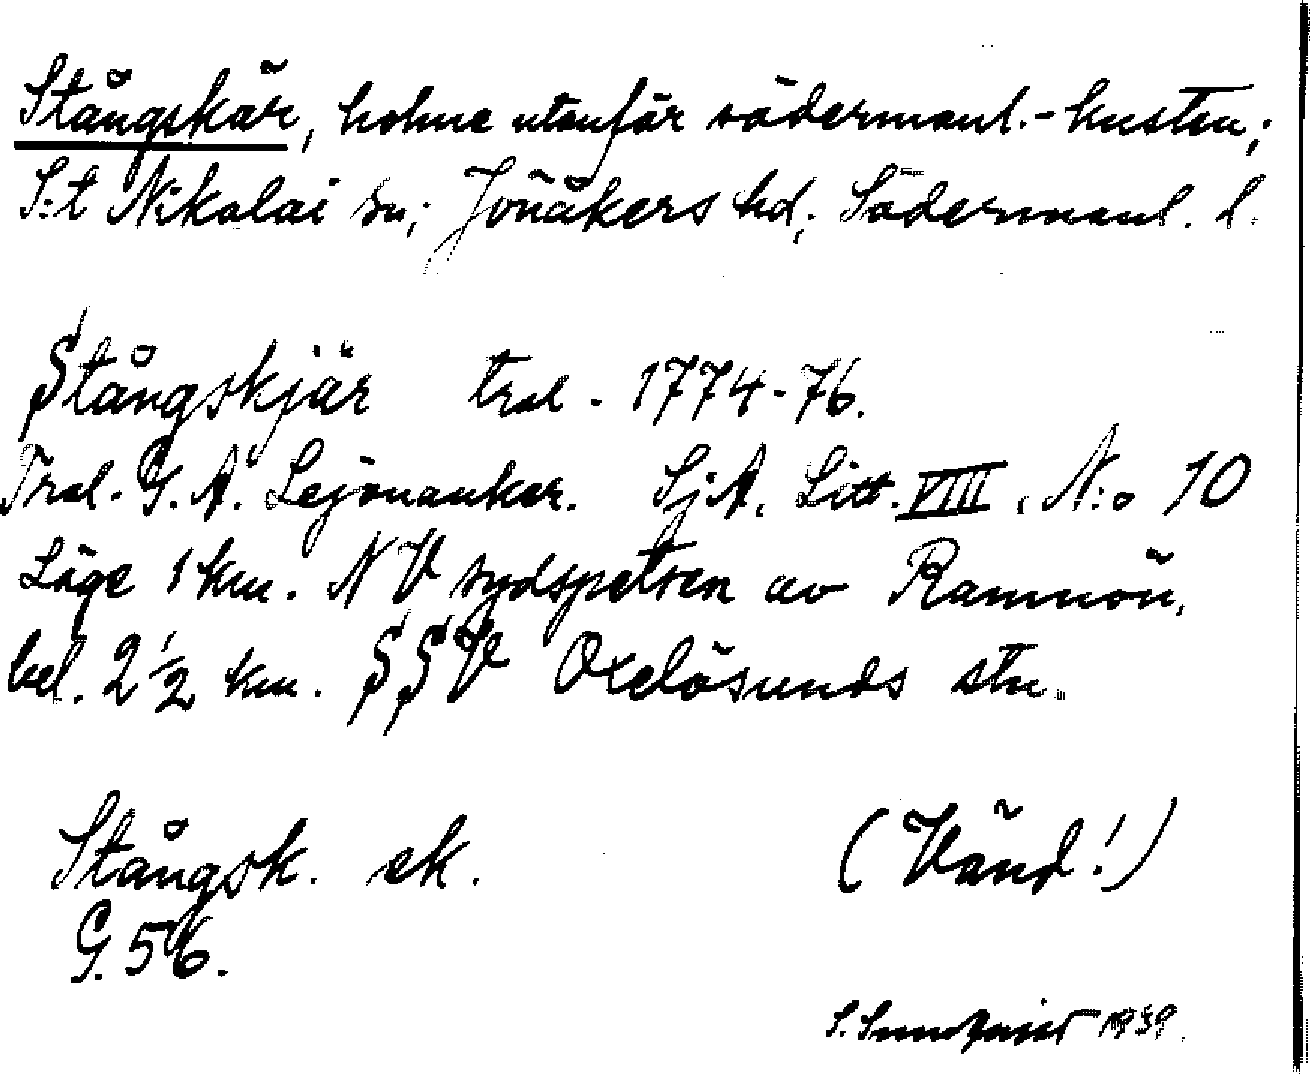 Stångskär, holme utanför södermanl.-kusten;
S:t Nikolai sn; Jönåkers hd; Södermanl. l.
Stångskjär trol. 1774-76.
Trol. G. A. Lejonanker. SjA. Litt. VIII, N:o 10
Läge 1 km. NV sydspetsen av Ramnön,
bel. 2 1/2 km. SSV Oxelösunds stn.
Stångsk. ek.
G. 56.
(Vänd!)
S. Sundqvist 1939.